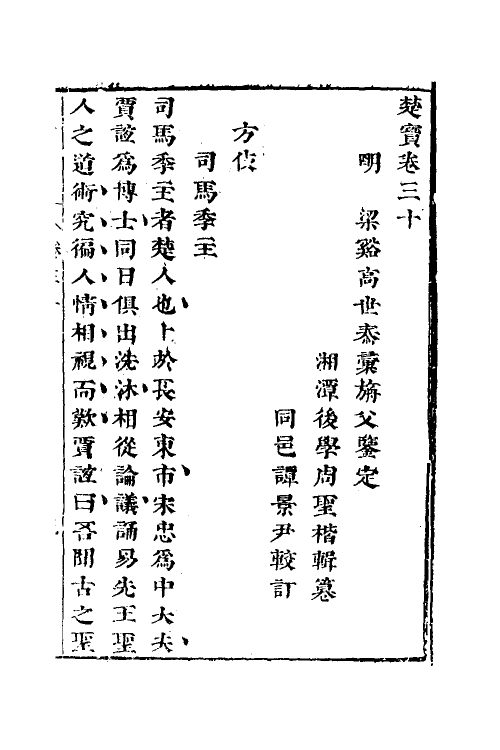 楚寶卷三十
明　梁谿高世泰彙旃父鑒定
湘潭後學周聖楷輯纂
同邑譚景尹較訂
方伎
司馬季主
司馬季主者楚人也卜於長安東市宋忠爲中大夫
賈誼爲博士同日俱出洗沐相從論議誦易先王聖
人之道術究徧人情相視而歎賈誼曰吾聞古之聖